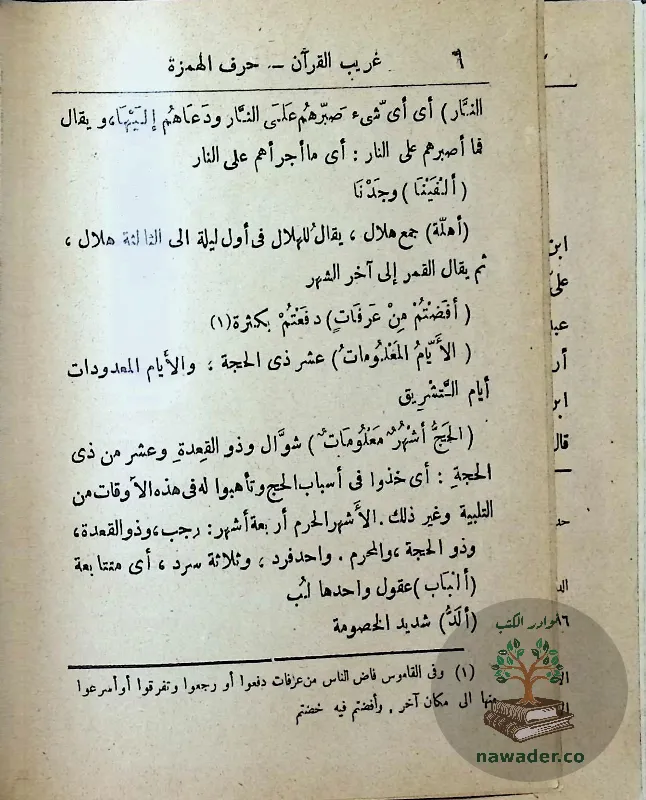 ٦ غريب القرآن – حرف الهمزة
النَّار) أى أىّ شىء صَبّرهُم عَلَى النَّار ودَعَاهُم إلَيْهَا، ويقال
فما أصبرهم على النار : أى ما أجرأهم على النار
(ألْفَيْنَا) وجَدْنَا
(أهلّة) جمع هلال ، يقال للهلال فى أول ليلة الى الثالثة هلال ،
ثم يقال القمر إلى آخر الشهر
(أفَضْتُمْ مِنْ عَرَفَاتٍ) دفَعْتُمْ بكثرة (١)
(الأَيَّامُ المَعْلُومَاتُ) عشر ذى الحجة ؛ والأيام المعدودات
أيام التَّشْرِيق
(الحَجُّ أشْهُرٌ مَعْلُومَاتٌ) شوَّال وذو القعدة وعشر من ذى
الحجةِ : أى خذوا فى أسباب الحج وتأهبوا له فى هذه الأوقات من
التلبية وغير ذلك . الأَشهر الحرم أربعة أشهر : رجب ، وذو القعدة ،
وذو الحجة ، والمحرم . واحد فرد ، وثلاثة سرد ، أى متتابعة
(ألْبَاب) عقول واحدها لُبّ
(ألَدُّ) شديد الخصومة
(١) وفى القاموس فاض الناس من عرفات دفعوا أو رجعوا وتفرقوا أو أسرعوا
منها الى مكان آخر . وأفضتم فيه خضتم
ابن
على
عبد
أر
ابن
قال
حد
الد
٨٦
نوادر الكتب
nawader.co